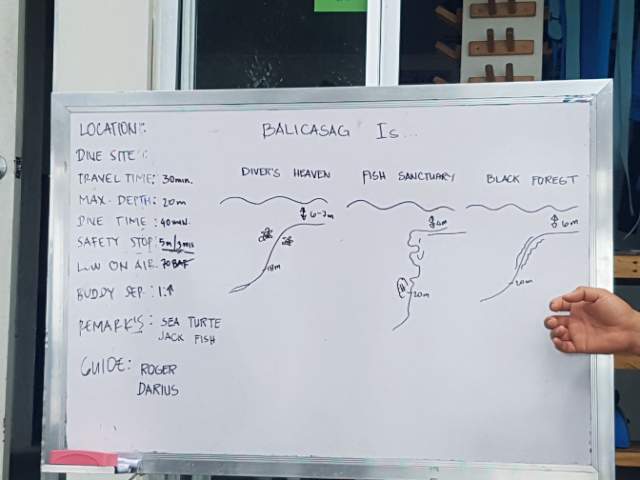 LOCATION:
BALICASAG Is...
DIVE SITE:
TRAVEL TIME: 30min.
MAX. DEPTH: 20m
DIVE TIME: 40min.
SAFETY STOP: 5m/3min
LOW ON AIR: 70BAR
BUDDY SEP: 1:↑
REMARK'S: SEA TURTE
JACK FISH
GUIDE: ROGER
DARIUS
DIVER'S HEAVEN
6-7m
18m
FISH SANCTUARY
20m
BLACK FOREST
6m
20m